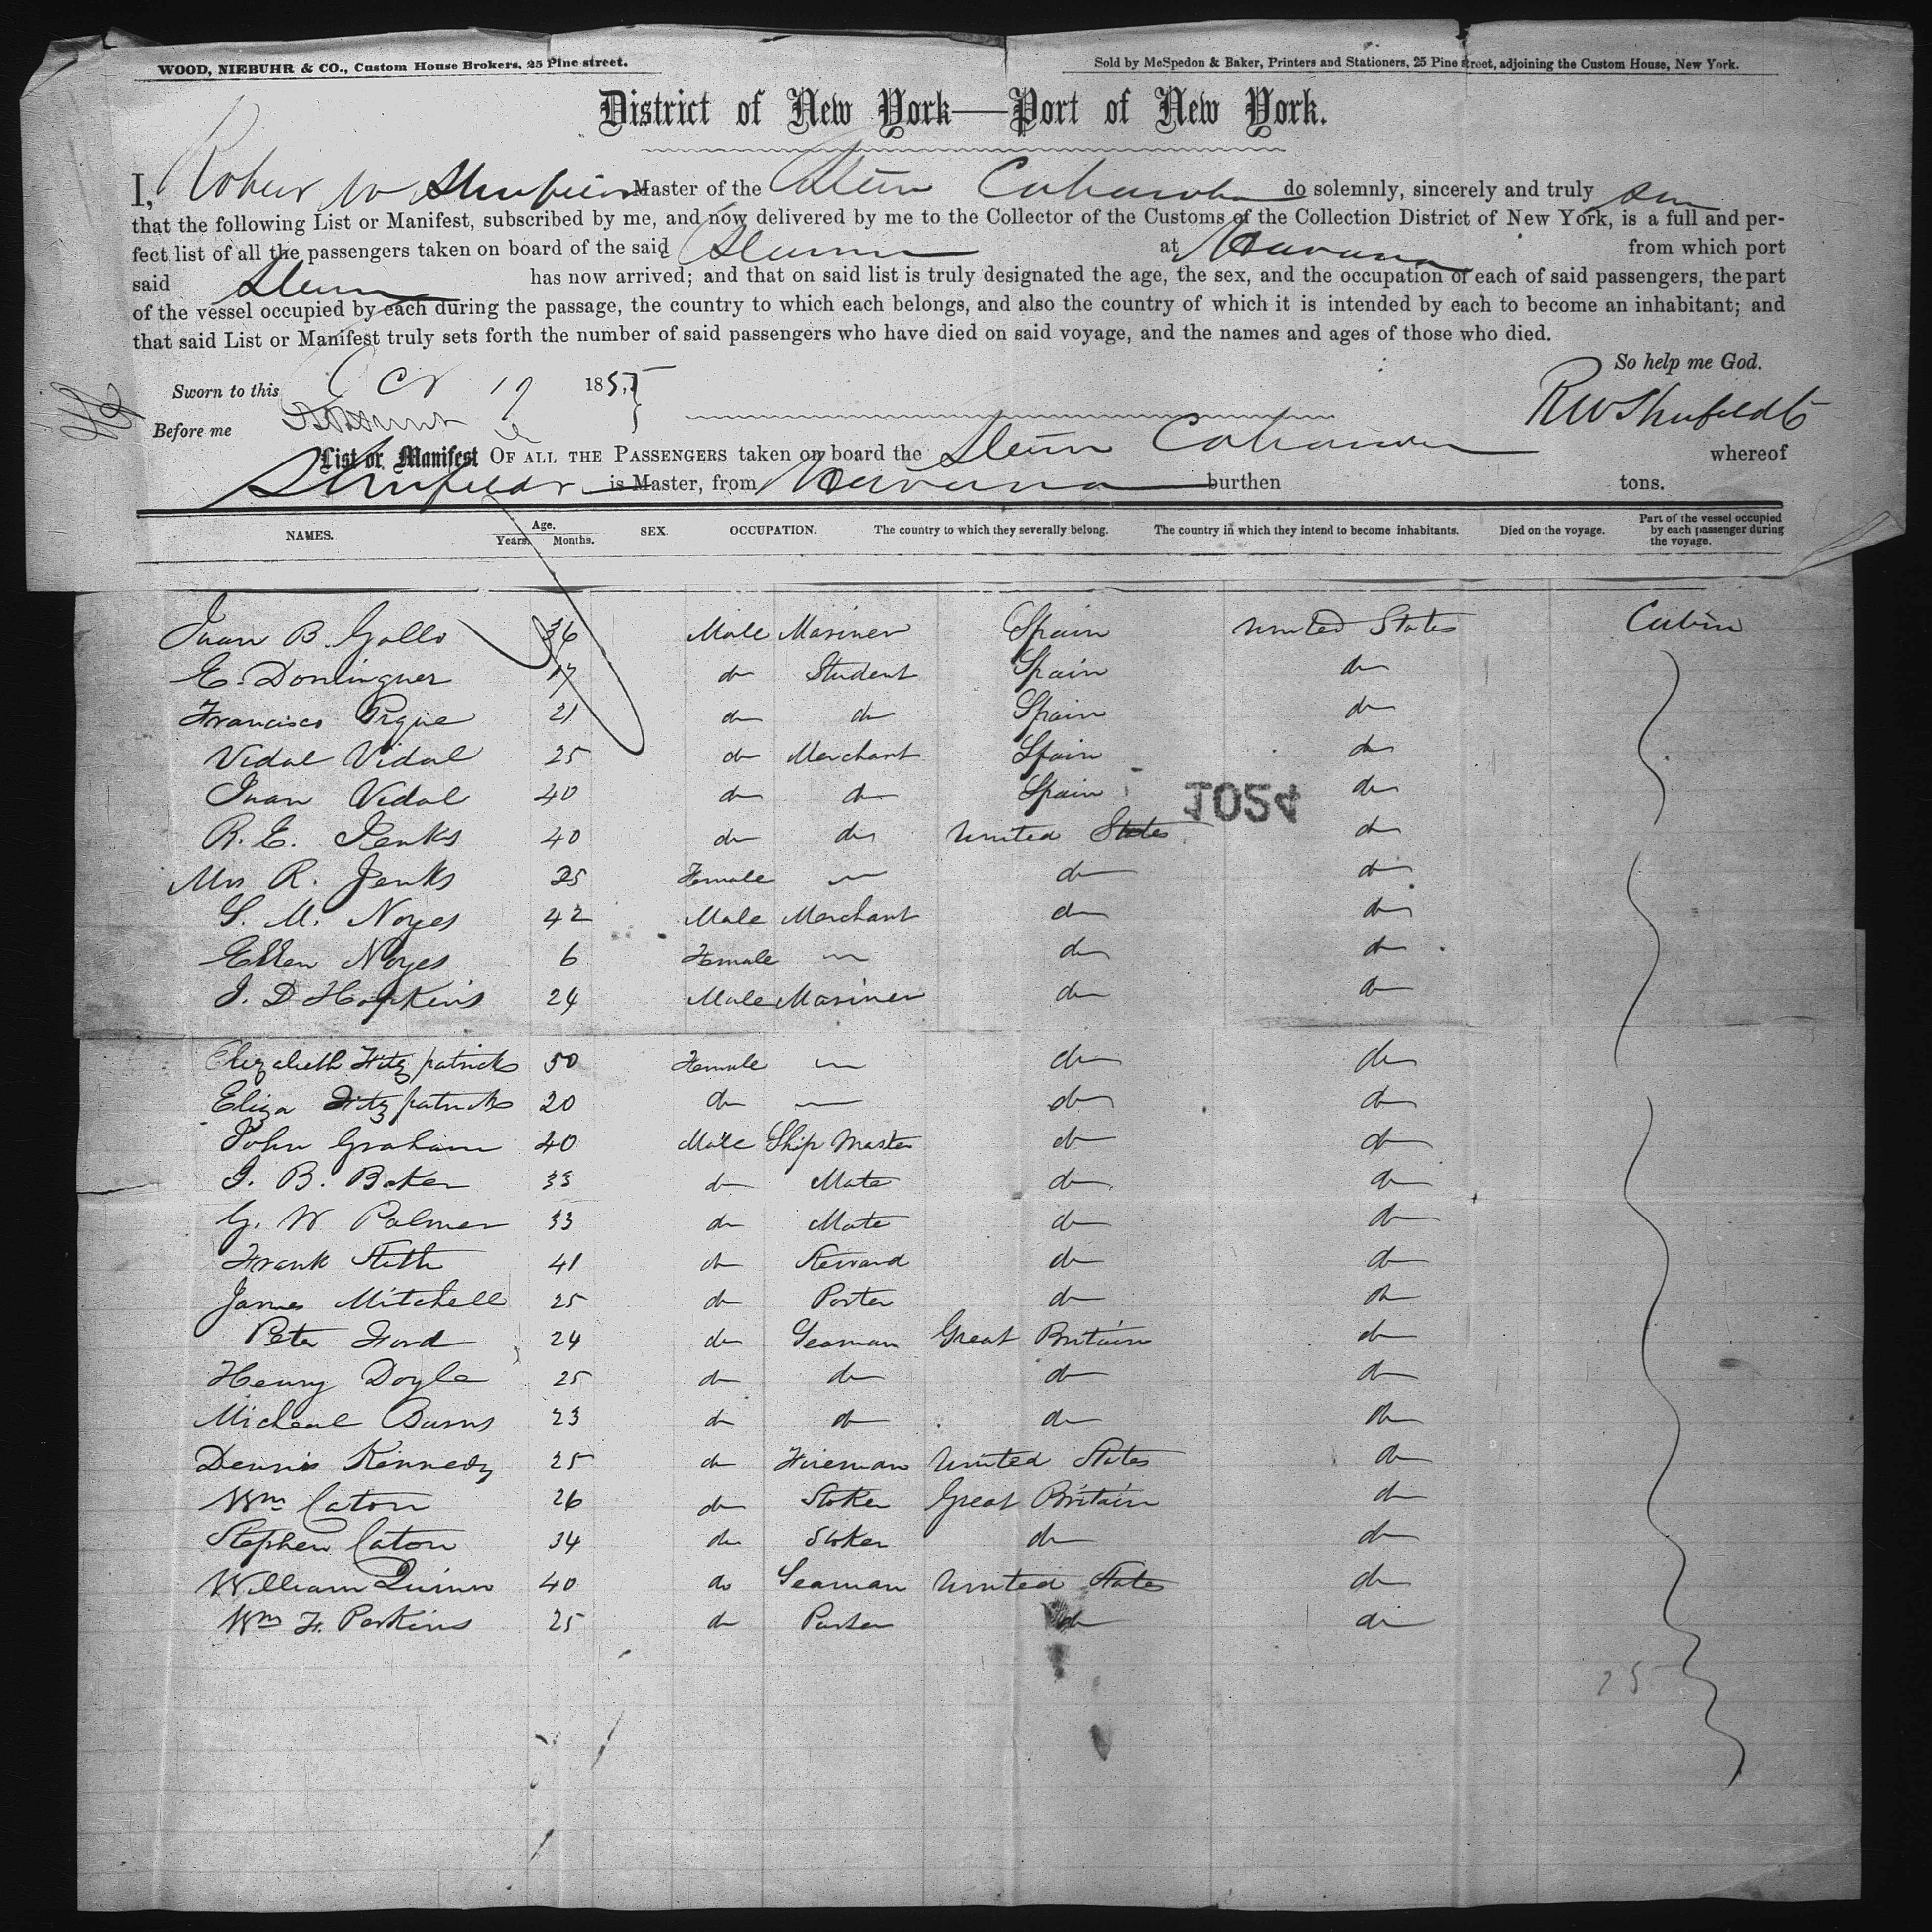 WOOD, NIEBUHR & CO., Custom House Brokers, 25 Pine street.
Sold by McSpedon & Baker, Printers and Stationers, 25 Pine street, adjoining the Custom House, New York.
District of New York—Port of New York.
I, Robert W Shufeldt Master of the Steamr Cahawba do solemnly, sincerely and truly swear
that the following List or Manifest, subscribed by me, and now delivered by me to the Collector of the Customs of the Collection District of New York, is a full and per-
fect list of all the passengers taken on board of the said Steamer at Havana from which port
said Steamr has now arrived; and that on said list is truly designated the age, the sex, and the occupation of each of said passengers, the part
of the vessel occupied by each during the passage, the country to which each belongs, and also the country of which it is intended by each to become an inhabitant; and
that said List or Manifest truly sets forth the number of said passengers who have died on said voyage, and the names and ages of those who died.
So help me God.
Sworn to this Oct 19 1855
R W Shufeldt
Before me
List or Manifest OF ALL THE PASSENGERS taken on board the Steamr Cahawba whereof
Shufeldt is Master, from Havana burthen tons.
NAMES. Age. Years. Months. SEX. OCCUPATION. The country to which they severally belong. The country in which they intend to become inhabitants. Died on the voyage. Part of the vessel occupied by each passenger during the voyage.
Juan B. Gallo 36 Male Mariner Spain United States Cabin
E. Dominguez 17 do Student Spain do
Francisco Pigue 21 do do Spain do
Vidal Vidal 25 do Merchant Spain do
Juan Vidal 40 do do Spain do
1054
R. E. Jenks 40 do do United States do
Mrs R. Jenks 25 Female — do do
S. M. Noyes 42 Male Merchant do do
Ellen Noyes 6 Female — do do
J. D Hopkins 24 Male Mariner do do
Elizabeth Fitzpatrick 50 Female — do do
Eliza Fitzpatrick 20 do — do do
John Graham 40 Male Ship Master do do
J. B. Baker 33 do Mate do do
G. W Palmer 33 do Mate do do
Frank Stith 41 do Steward do do
James Mitchell 25 do Porter do do
Peter Ford 24 do Seaman Great Britain do
Henry Doyle 25 do do do do
Micheal Burns 23 do do do do
Dennis Kennedy 25 do Fireman United States do
Wm Caton 26 do Stoker Great Britain do
Stephen Caton 34 do Stoker do do
William Quinn 40 do Seaman United States do
Wm F. Perkins 25 do Purser do do
25